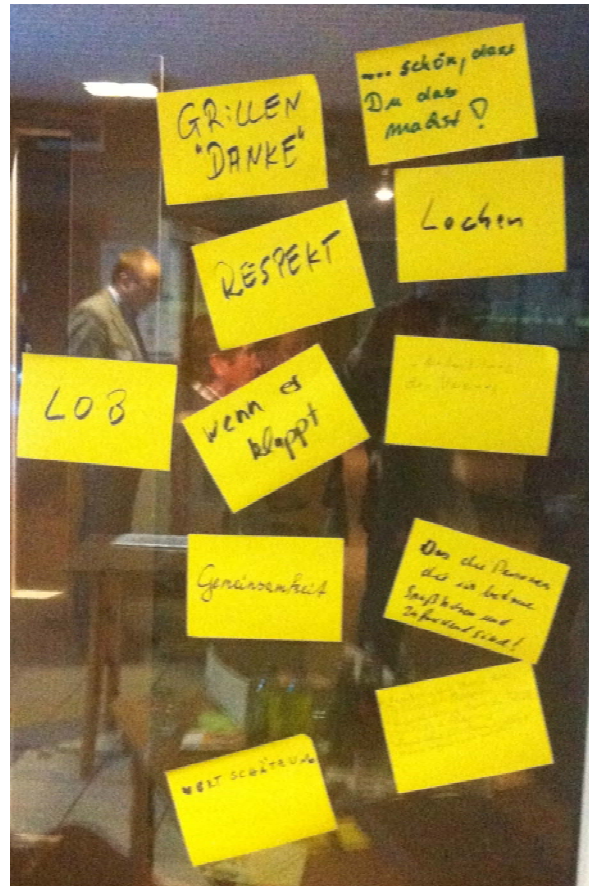 GRiLLEN
"DANKE"
.... schön, dass
Du das
machst!
RESPEKT
Lachen
LOB
wenn es
klappt
Gemeinsamkeit
Das die Personen
die ich betreue
Spaß haben und
Zufrieden sind!
WERTSCHÄTZUNG